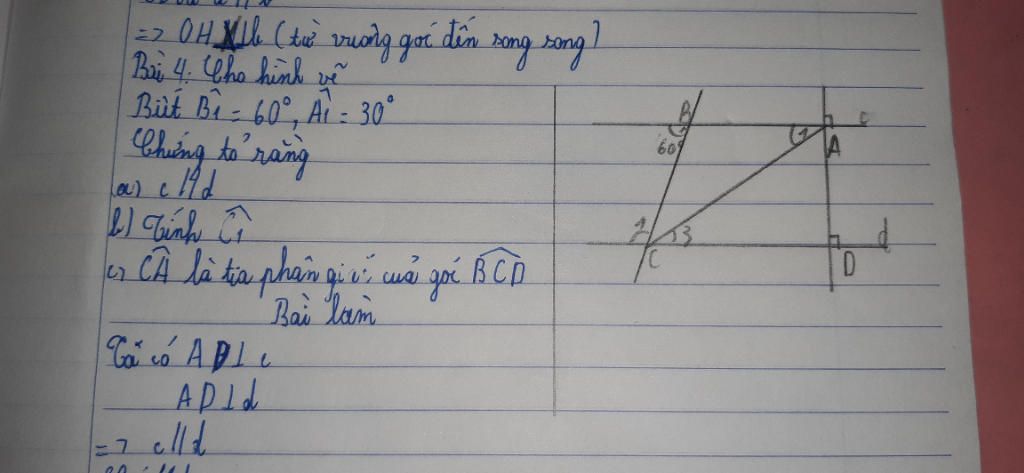 => OH ⊥ b (từ vuông góc đến song song)
Bài 4: Cho hình vẽ
Biết B̂1 = 60°, Â1 = 30°
Chứng tỏ rằng
a) c // d
b) Tính Ĉ1
c) CA là tia phân giác của góc BCD
Bài làm
Ta có AD ⊥ c
AD ⊥ d
=> c // d
B
c
60°
1
A
2
3
C
d
D